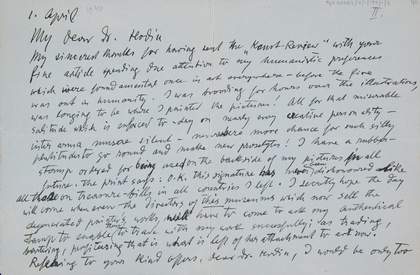 1. April
II
My Dear Dr. Hodin
My sincerest thanks for having sent the „Kunst-Review" with your
fine article spending due attention to my humanistic preferences
which were fundamental once in art everywhere - before the fire
was out in humanity. I was brooding for hours over the illustrations,
was longing to be where I painted the pictures! All for that miserable
solitude which is enforced to-day on nearly every creative personality -
inter arma musae silent - nowhere more chance for such silly
to go round and make new proselytes! I have a rubber-
stamp ordered for being used on the backside of my pictures for all
future. The print says: O.K. this signature has never dishonoured like
all those on treasure-bills in all countries I left. I secretly hope the day
will come whenever the Directors of this museums which now sell the
degenerated works, will have to come to ask my authentical
stamp to enable to trade with my work successfully; as trading,
bartering, profiteering that is what is left of her attachment to art now.
to your kind offers, dear Dr. Hodin, I would be only too